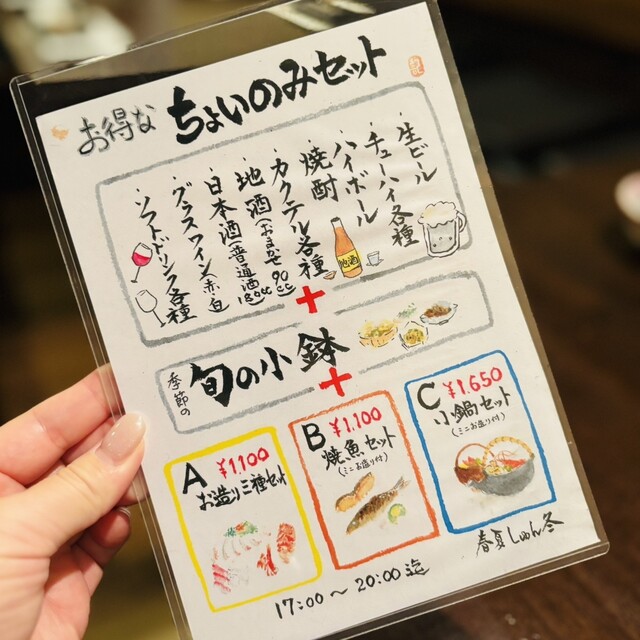 お得な ちょいのみセット
・生ビール
・チューハイ各種
・ハイボール
・焼酎
・カクテル各種
・地酒(おまかせ90cc)
・日本酒(普通酒180cc)
・グラスワイン(赤・白)
・ソフトドリンク各種
地酒
+
季節の 旬の小鉢
+
A ¥1,100
お造り三種セット
B ¥1,100
焼魚セット
(ミニお造り付)
C ¥1,650
小鍋セット
(ミニお造り付)
春夏しゅん冬
17:00〜20:00迄